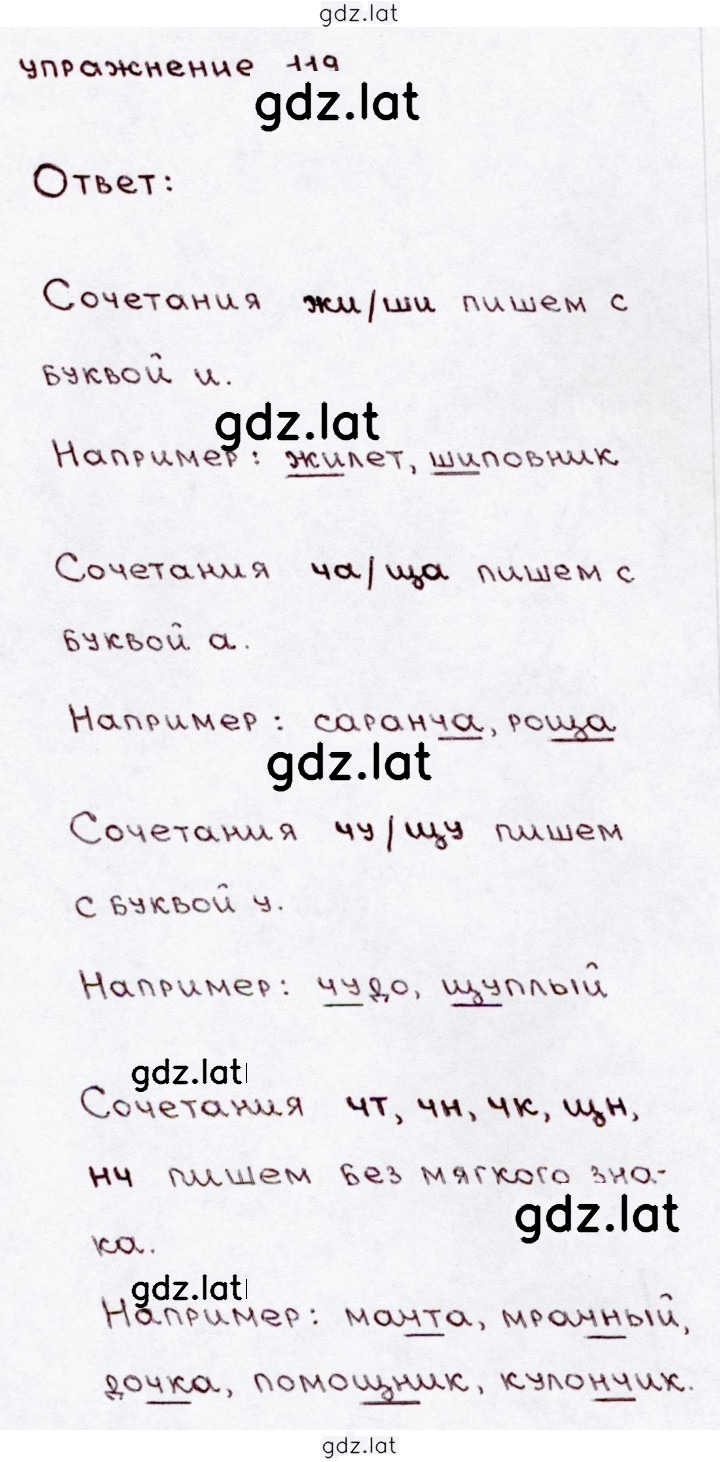 gdz.lat
упражнение 119
gdz.lat
Ответ:
Сочетания жи/ши пишем с
буквой и.
gdz.lat
Например: жилет, шиповник
Сочетания ча/ща пишем с
буквой а.
Например: саранча, роща
gdz.lat
Сочетания чу/щу пишем
с буквой у.
Например: чудо, щуплый
gdz.lat
Сочетания чт, чн, чк, щн,
нч пишем без мягкого зна-
gdz.lat
ка.
gdz.lat
Например: мачта, мрачный,
дочка, помощник, купончик.
gdz.lat